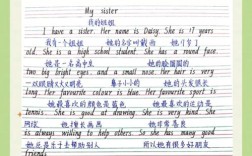 My sister
我的姐姐
I have a sister. Her name is Daisy. She is 17 years
我有一个姐姐 她的名字叫戴西
old. She is a high school student. She has a round face.
她是一名高中生 她的脸圆圆的
two big bright eyes, and a small nose. Her hair is very
一双 大眼睛 鼻子小小的 她的头发很长
long. Her favourite colour is blue. Her favourite sport is
她最喜欢的颜色是蓝色 她最喜欢的运动是
tennis. She is good at drawing. She is very kind. She
网球 她擅长画画 她非常善良
is always willing to help others. So she has many good
她还总乐于去帮助别人 所以她有很多好朋友
friends.